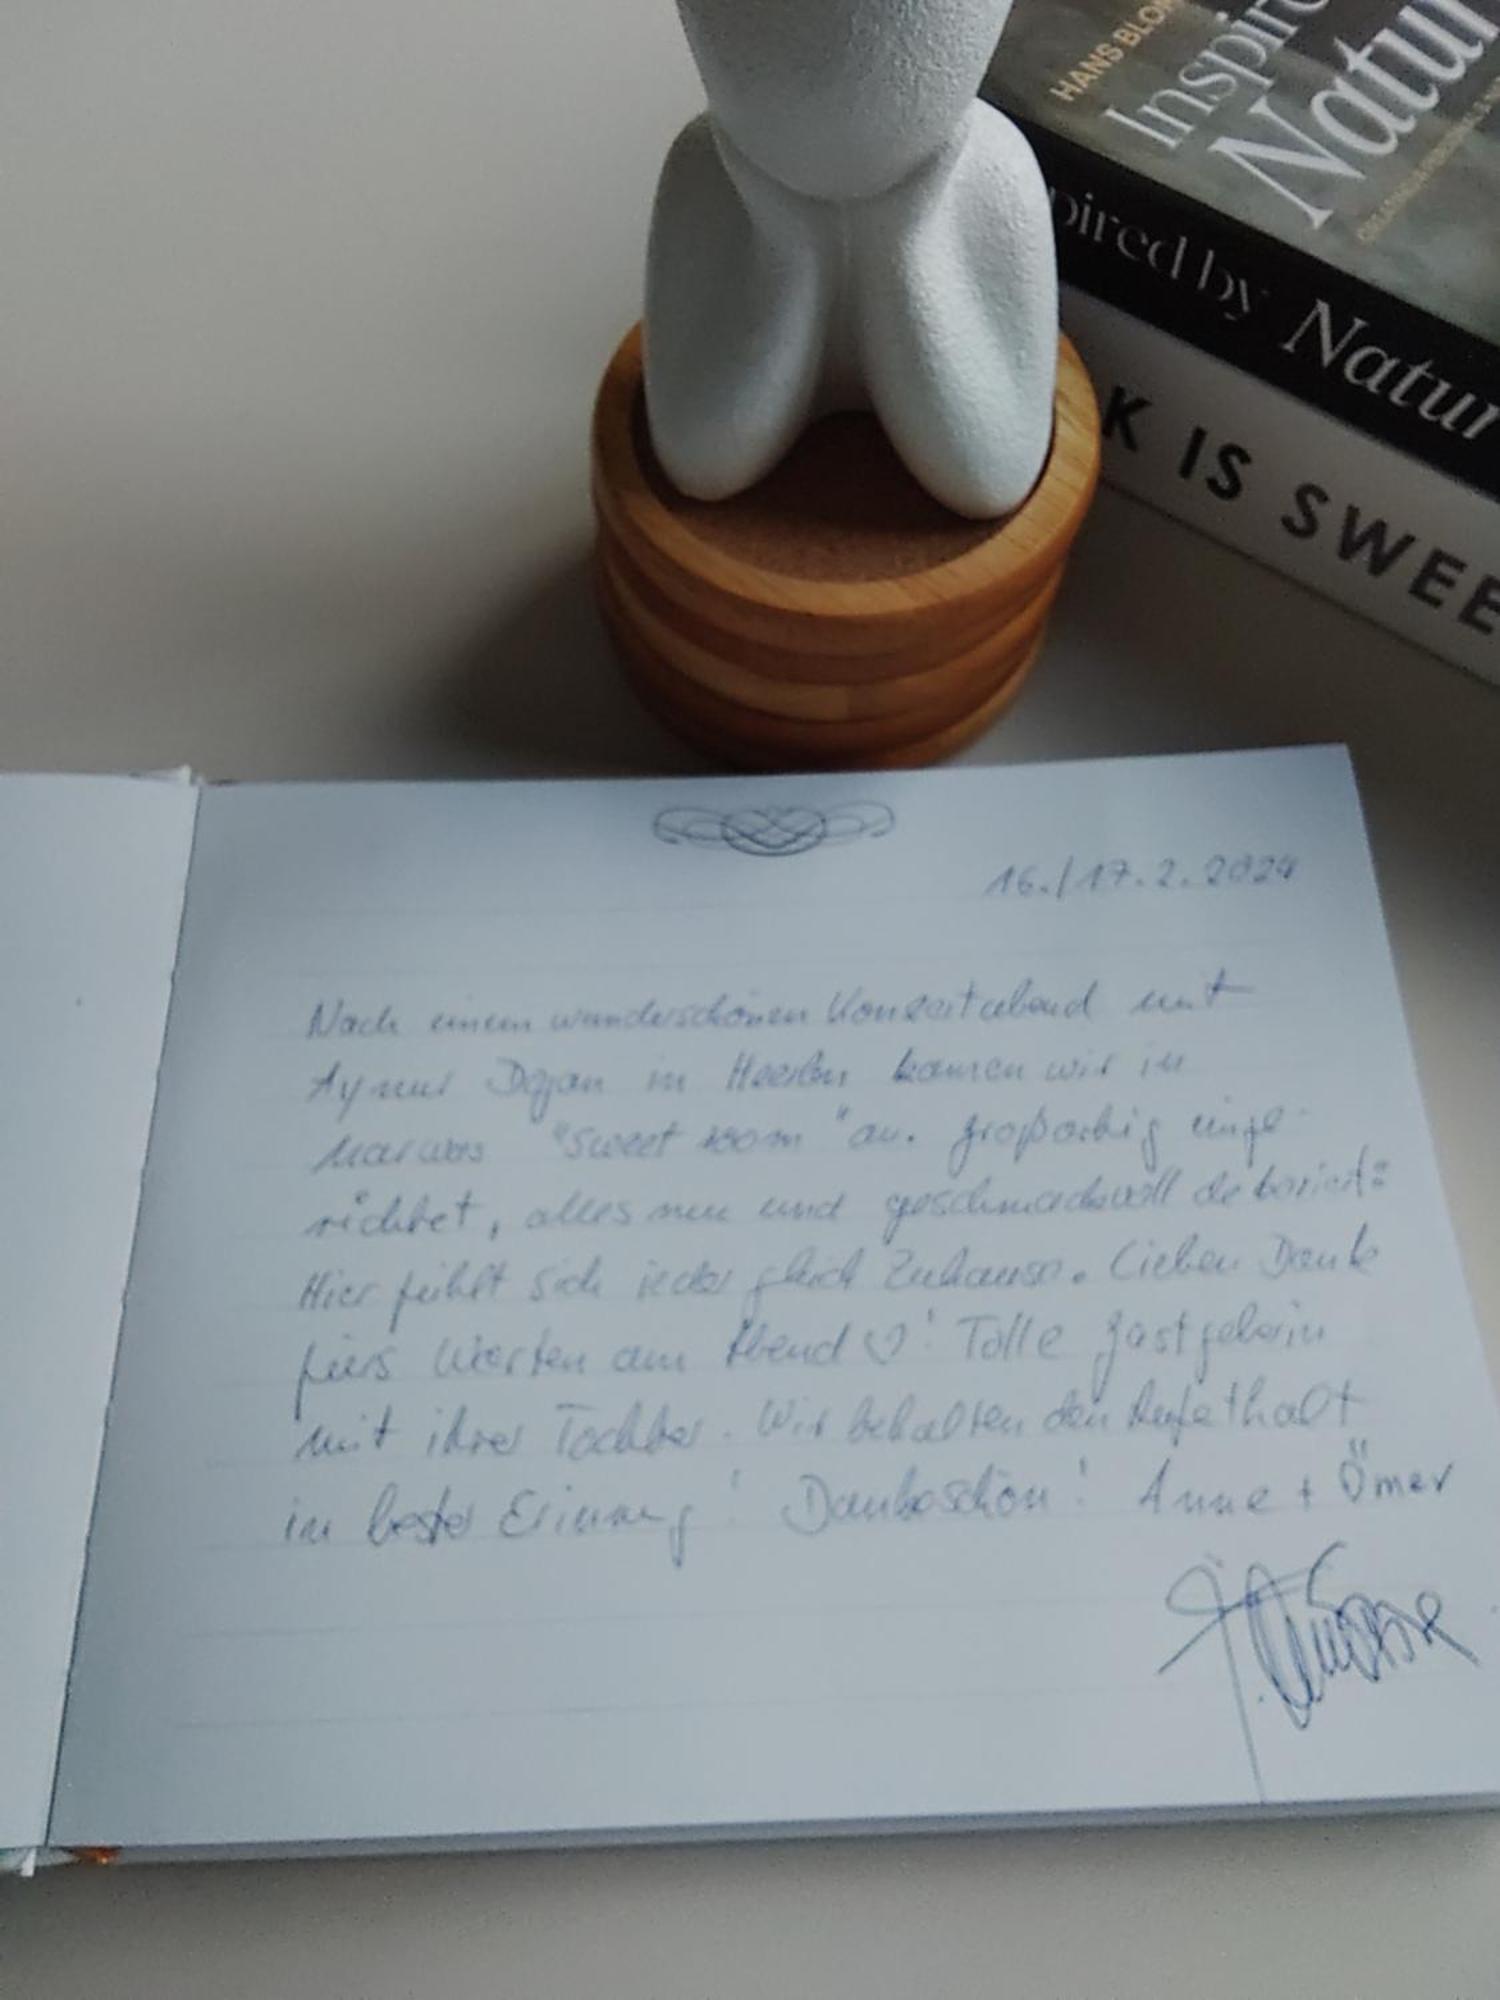 HANS BLOM
Inspire
Natur
pired by Natur
K IS SWEE
16./17.2.2024
Nach einem wunderschönen Konzertabend mit
Aynur Doğan in Heerlen kamen wir in
Marwas "sweet room" an. Großartig einge-
richtet, alles neu und geschmackvoll dekoriert!
Hier fühlt sich jeder gleich Zuhause. Lieben Dank
fürs Warten am Abend ♡! Tolle Gastgeberin
mit ihrer Tochter. Wir behalten den Aufethalt
in bester Erinnerung! Dankeschön! Anne + Ömer